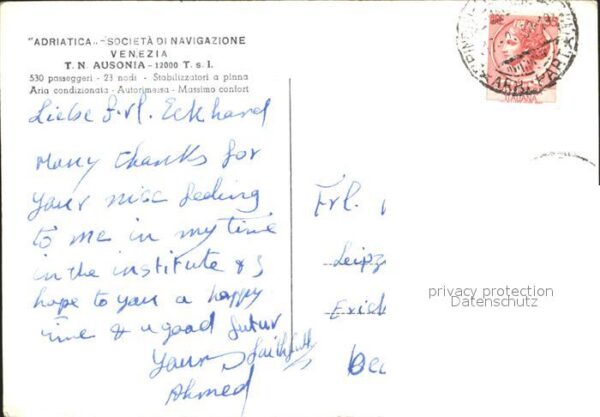 "ADRIATICA" - SOCIETÀ DI NAVIGAZIONE
VENEZIA
T. N. AUSONIA - 12000 T. s. l.
530 passeggeri - 23 nodi - Stabilizzatori a pinna
Aria condizionata - Autorimessa - Massimo confort
Liebe Frl. Eckhard
Many thanks for
your nise feeling
to me in my time
in the institute & I
hope to you a happy
time & a good futur
Yours faithfull
Ahmed
Frl.
Leipz
Erich
privacy protection
Datenschutz
ITALIANA